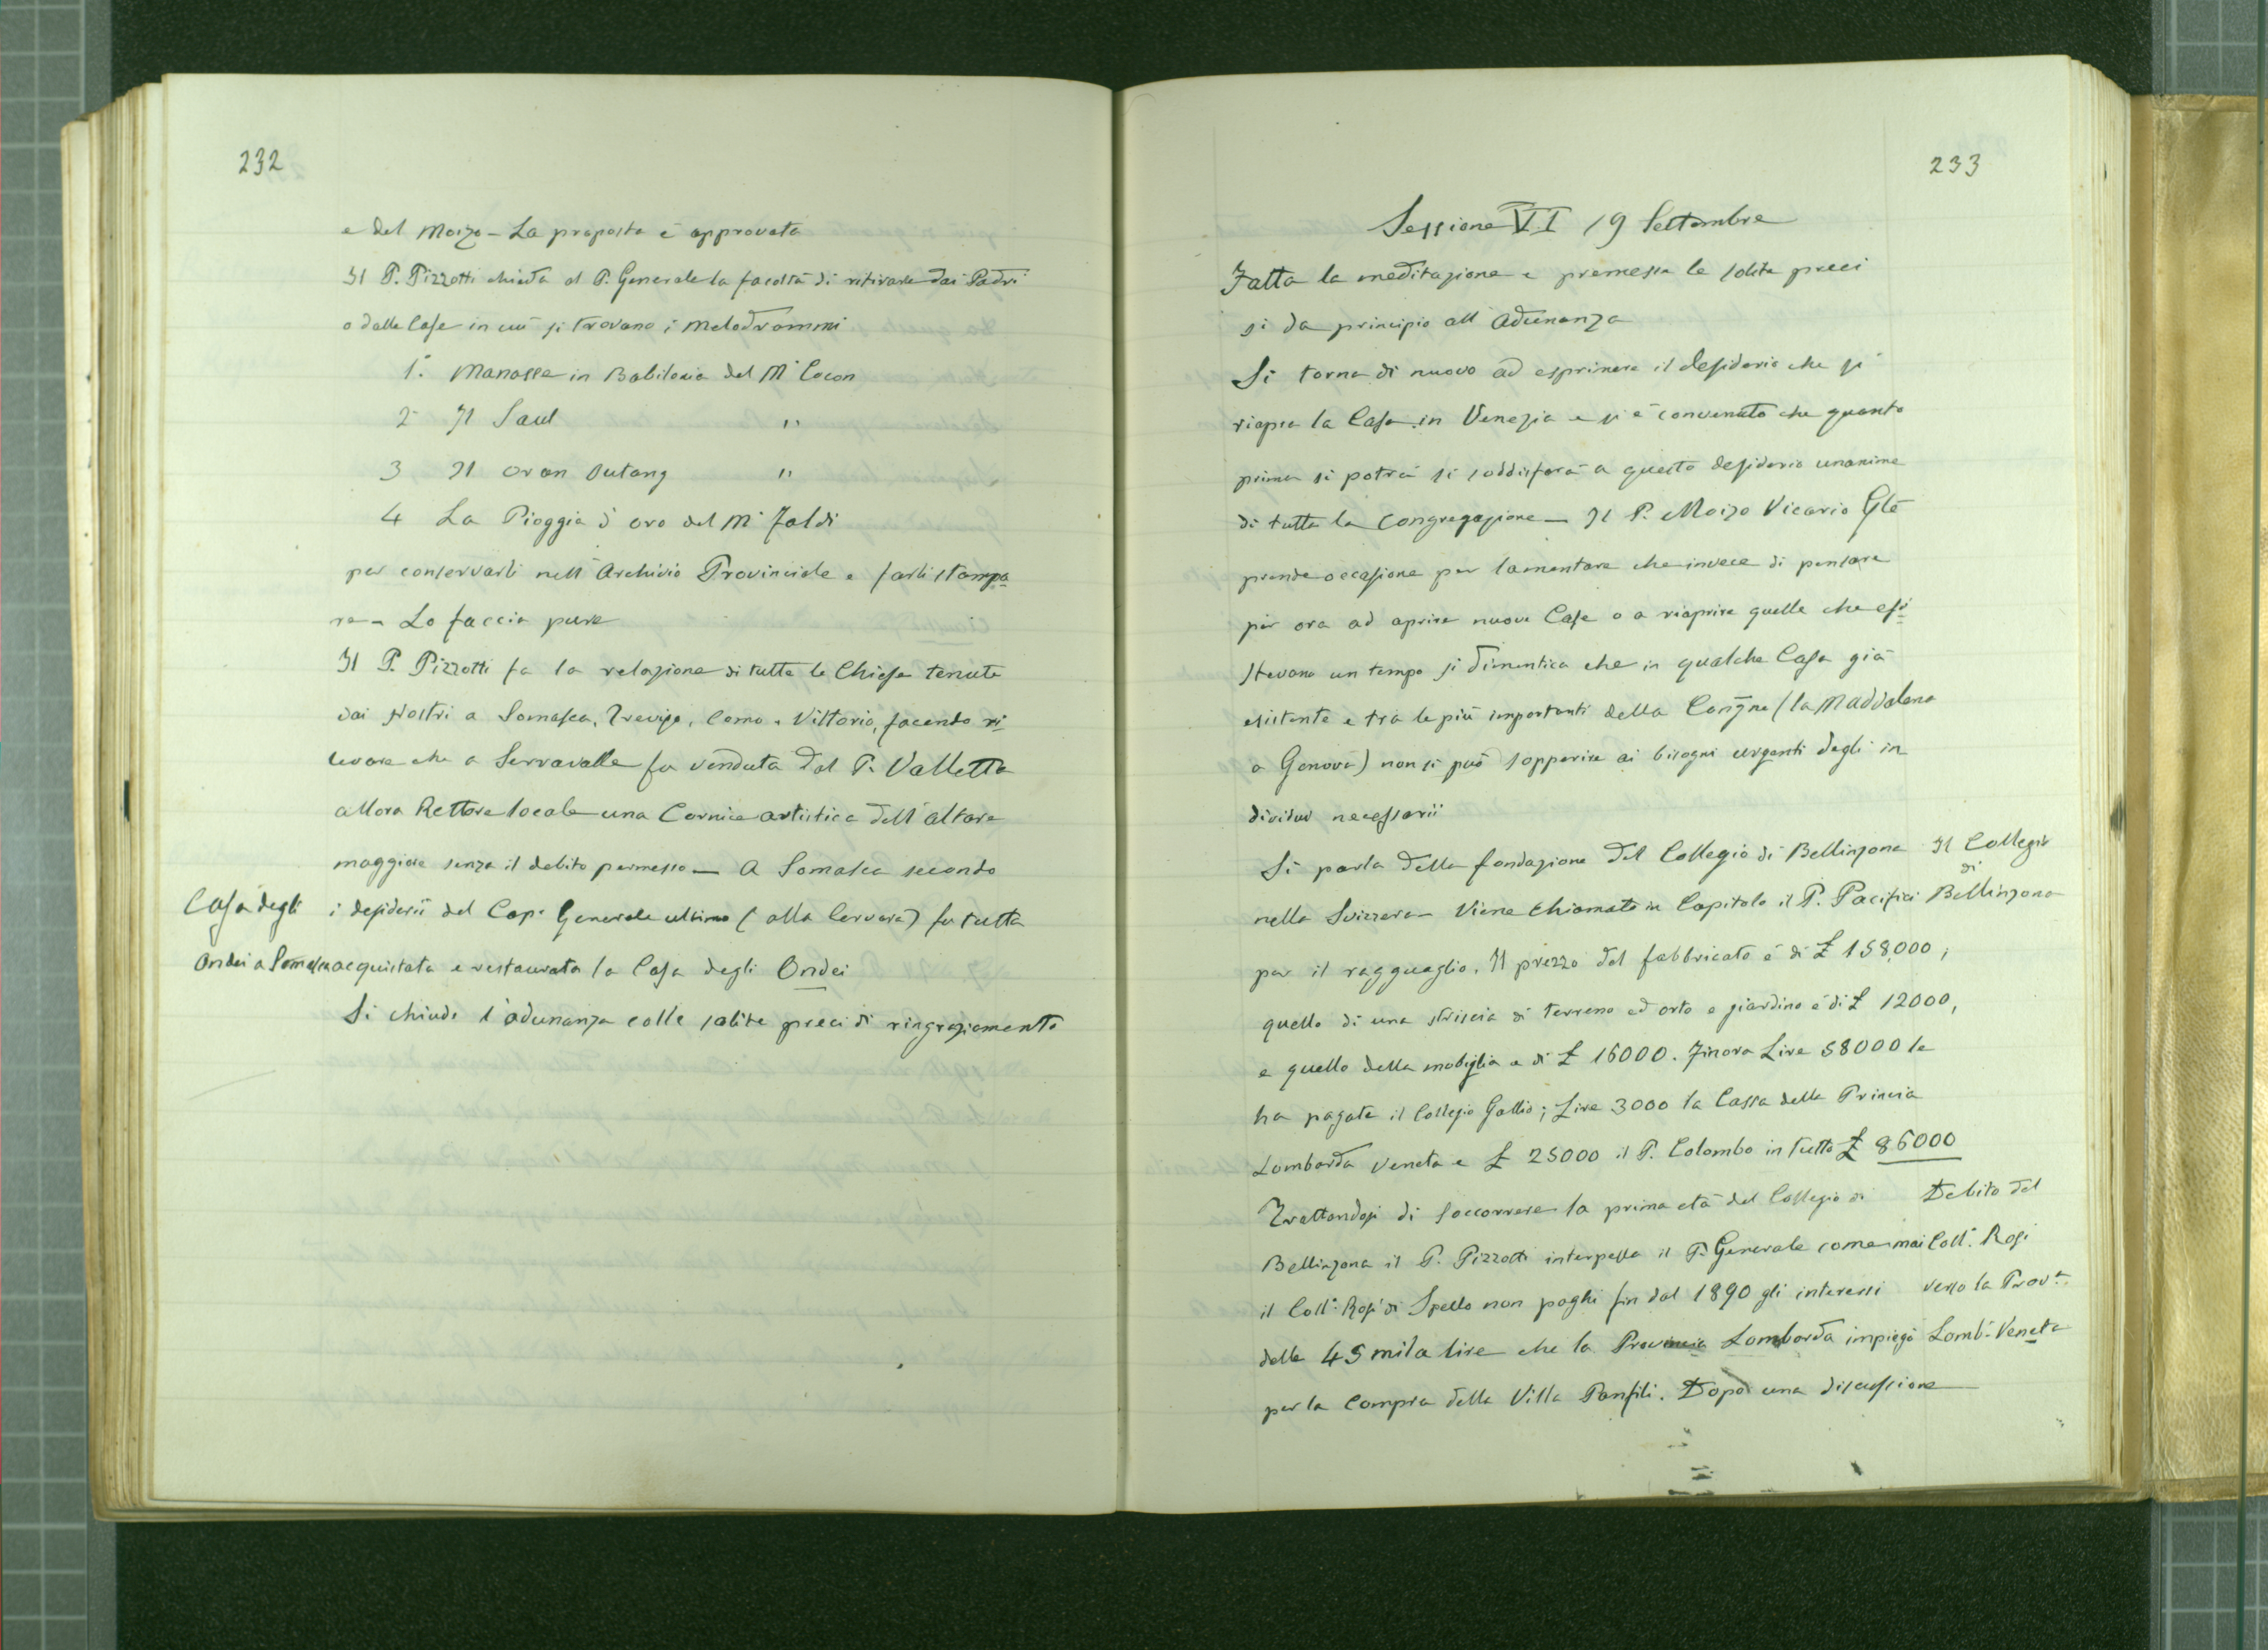 232
e del Moizo - La proposta è approvata
Il P. Pizzotti chieda al P. Generale la facoltà di ritirare dai Padri
o dalle Case in cui si trovano i Melodrammi
1.° Manasse in Babilonia del M° Cocon
2° Il Saul "
3 Il Oran Outang "
4 La Pioggia d'oro del M° Faldi
per conservarli nell'Archivio Provinciale e farli stampa
re - Lo faccia pure
Il P. Pizzotti fa la relazione di tutte le Chiese tenute
dai Nostri a Somasca, Treviso, Como e Vittorio, facendo ri
levare che a Serravalle fu venduta dal P. Valletta
allora Rettore locale una Cornice artistica dell'altare
maggiore senza il debito permesso — A Somasca secondo
Casa degli
i desiderii del Cap. Generale ultimo (alla Cervara) fu tutta
Ondei a Somasca
acquistata e restaurata la Casa degli Ondei
Si chiude l'adunanza colle solite preci di ringraziamento
233
Sessione VI 19 Settembre
Fatta la meditazione e premesse le solite preci
si da principio all'Adunanza
Si torna di nuovo ad esprimere il desiderio che si
riapra la Casa in Venezia e si è convenuto che quanto
prima si potrà si soddisfarà a questo desiderio unanime
di tutta la Congregazione — Il P. Moizo Vicario Gle
prende occasione per lamentare che invece di pensare
per ora ad aprire nuove Case o a riaprire quelle che esi
stevano un tempo si dimentica che in qualche Casa già
esistente e tra le più importanti della Congne (la Maddalena
a Genova) non si può sopperire ai bisogni urgenti degli in
dividui necessarii
Si parla della fondazione del Collegio di Bellinzona
Il Collegio
di
nella Svizzera - Viene chiamato in Capitolo il P. Pacifici
Bellinzona
per il ragguaglio. Il prezzo del fabbricato è di £ 158,000;
quello di una striscia di terreno ad orto e giardino è di £ 12000,
e quello della mobiglia e di £ 16000. Finora Lire 58000 le
ha pagate il Collegio Gallio; Lire 3000 la Cassa della Princia
Lombarda Veneta e £ 25000 il P. Colombo in tutto £ 86000
Trattandosi di soccorrere la prima età del Collegio di
Debito del
Bellinzona il P. Pizzotti interpella il P. Generale come mai
Coll.° Rosi
il Coll.° Rosi di Spello non paghi fin dal 1890 gli interessi
verso la Prov.a
delle 45 mila lire che la Provincia Lombarda impiegò
Lomb.° Veneta
per la Compra della Villa Panfili. Dopo una discussione